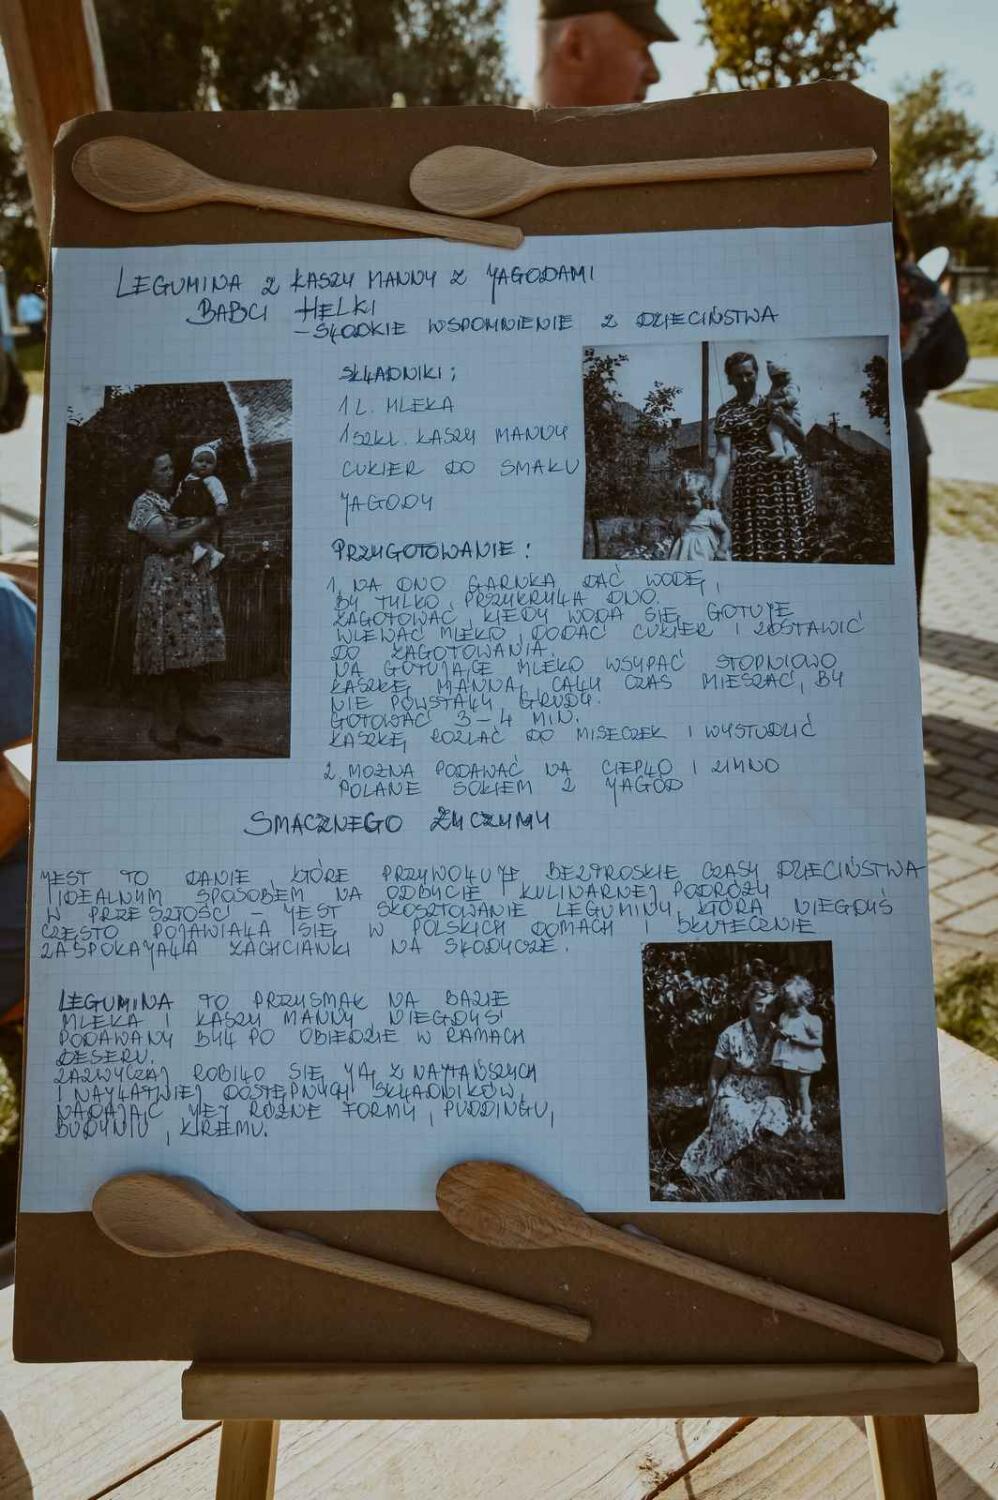 LEGUMINA Z KASZY MANNY Z JAGODAMI
BABCI HELKI
- SŁODKIE WSPOMNIENIE Z DZIECIŃSTWA
SKŁADNIKI:
1 L. MLEKA
1 SZKL. KASZY MANNY
CUKIER DO SMAKU
JAGODY
PRZYGOTOWANIE:
1. NA DNO GARNKA DAĆ WODĘ,
BY TYLKO PRZYKRYŁA DNO.
ZAGOTOWAĆ, KIEDY WODA SIĘ GOTUJE
WLEWAĆ MLEKO, DODAĆ CUKIER I ZOSTAWIĆ
DO ZAGOTOWANIA.
NA GOTUJĄCE MLEKO WSYPAĆ STOPNIOWO
KASZKĘ MANNĄ, CAŁY CZAS MIESZAĆ, BY
NIE POWSTAŁY GRUDY.
GOTOWAĆ 3-4 MIN.
KASZKĘ ROZLAĆ DO MISECZEK I WYSTUDZIĆ
2. MOŻNA PODAWAĆ NA CIEPŁO I ZIMNO
POLANE SOKIEM Z JAGÓD
SMACZNEGO ŻYCZYMY
JEST TO DANIE, KTÓRE PRZYWOŁUJE BEZTROSKIE CZASY DZIECIŃSTWA
I IDEALNYM SPOSOBEM NA ODBYCIE KULINARNEJ PODRÓŻY
W PRZESZŁOŚCI - JEST SKOSZTOWANIE LEGUMINY, KTÓRA NIEGDYŚ
CZĘSTO POJAWIAŁA SIĘ W POLSKICH DOMACH I SKUTECZNIE
ZASPOKAJAŁA ZACHCIANKI NA SŁODYCZE.
LEGUMINA TO PRZYSMAK NA BAZIE
MLEKA I KASZY MANNY NIEGDYŚ
PODAWANY BYŁ PO OBIEDZIE W RAMACH
DESERU.
ZAZWYCZAJ ROBIŁO SIĘ JĄ Z NAJTAŃSZYCH
I NAJŁATWIEJ DOSTĘPNYCH SKŁADNIKÓW,
NADAJĄC JEJ RÓŻNE FORMY, PUDDINGU,
BUDYNIU, KREMU.